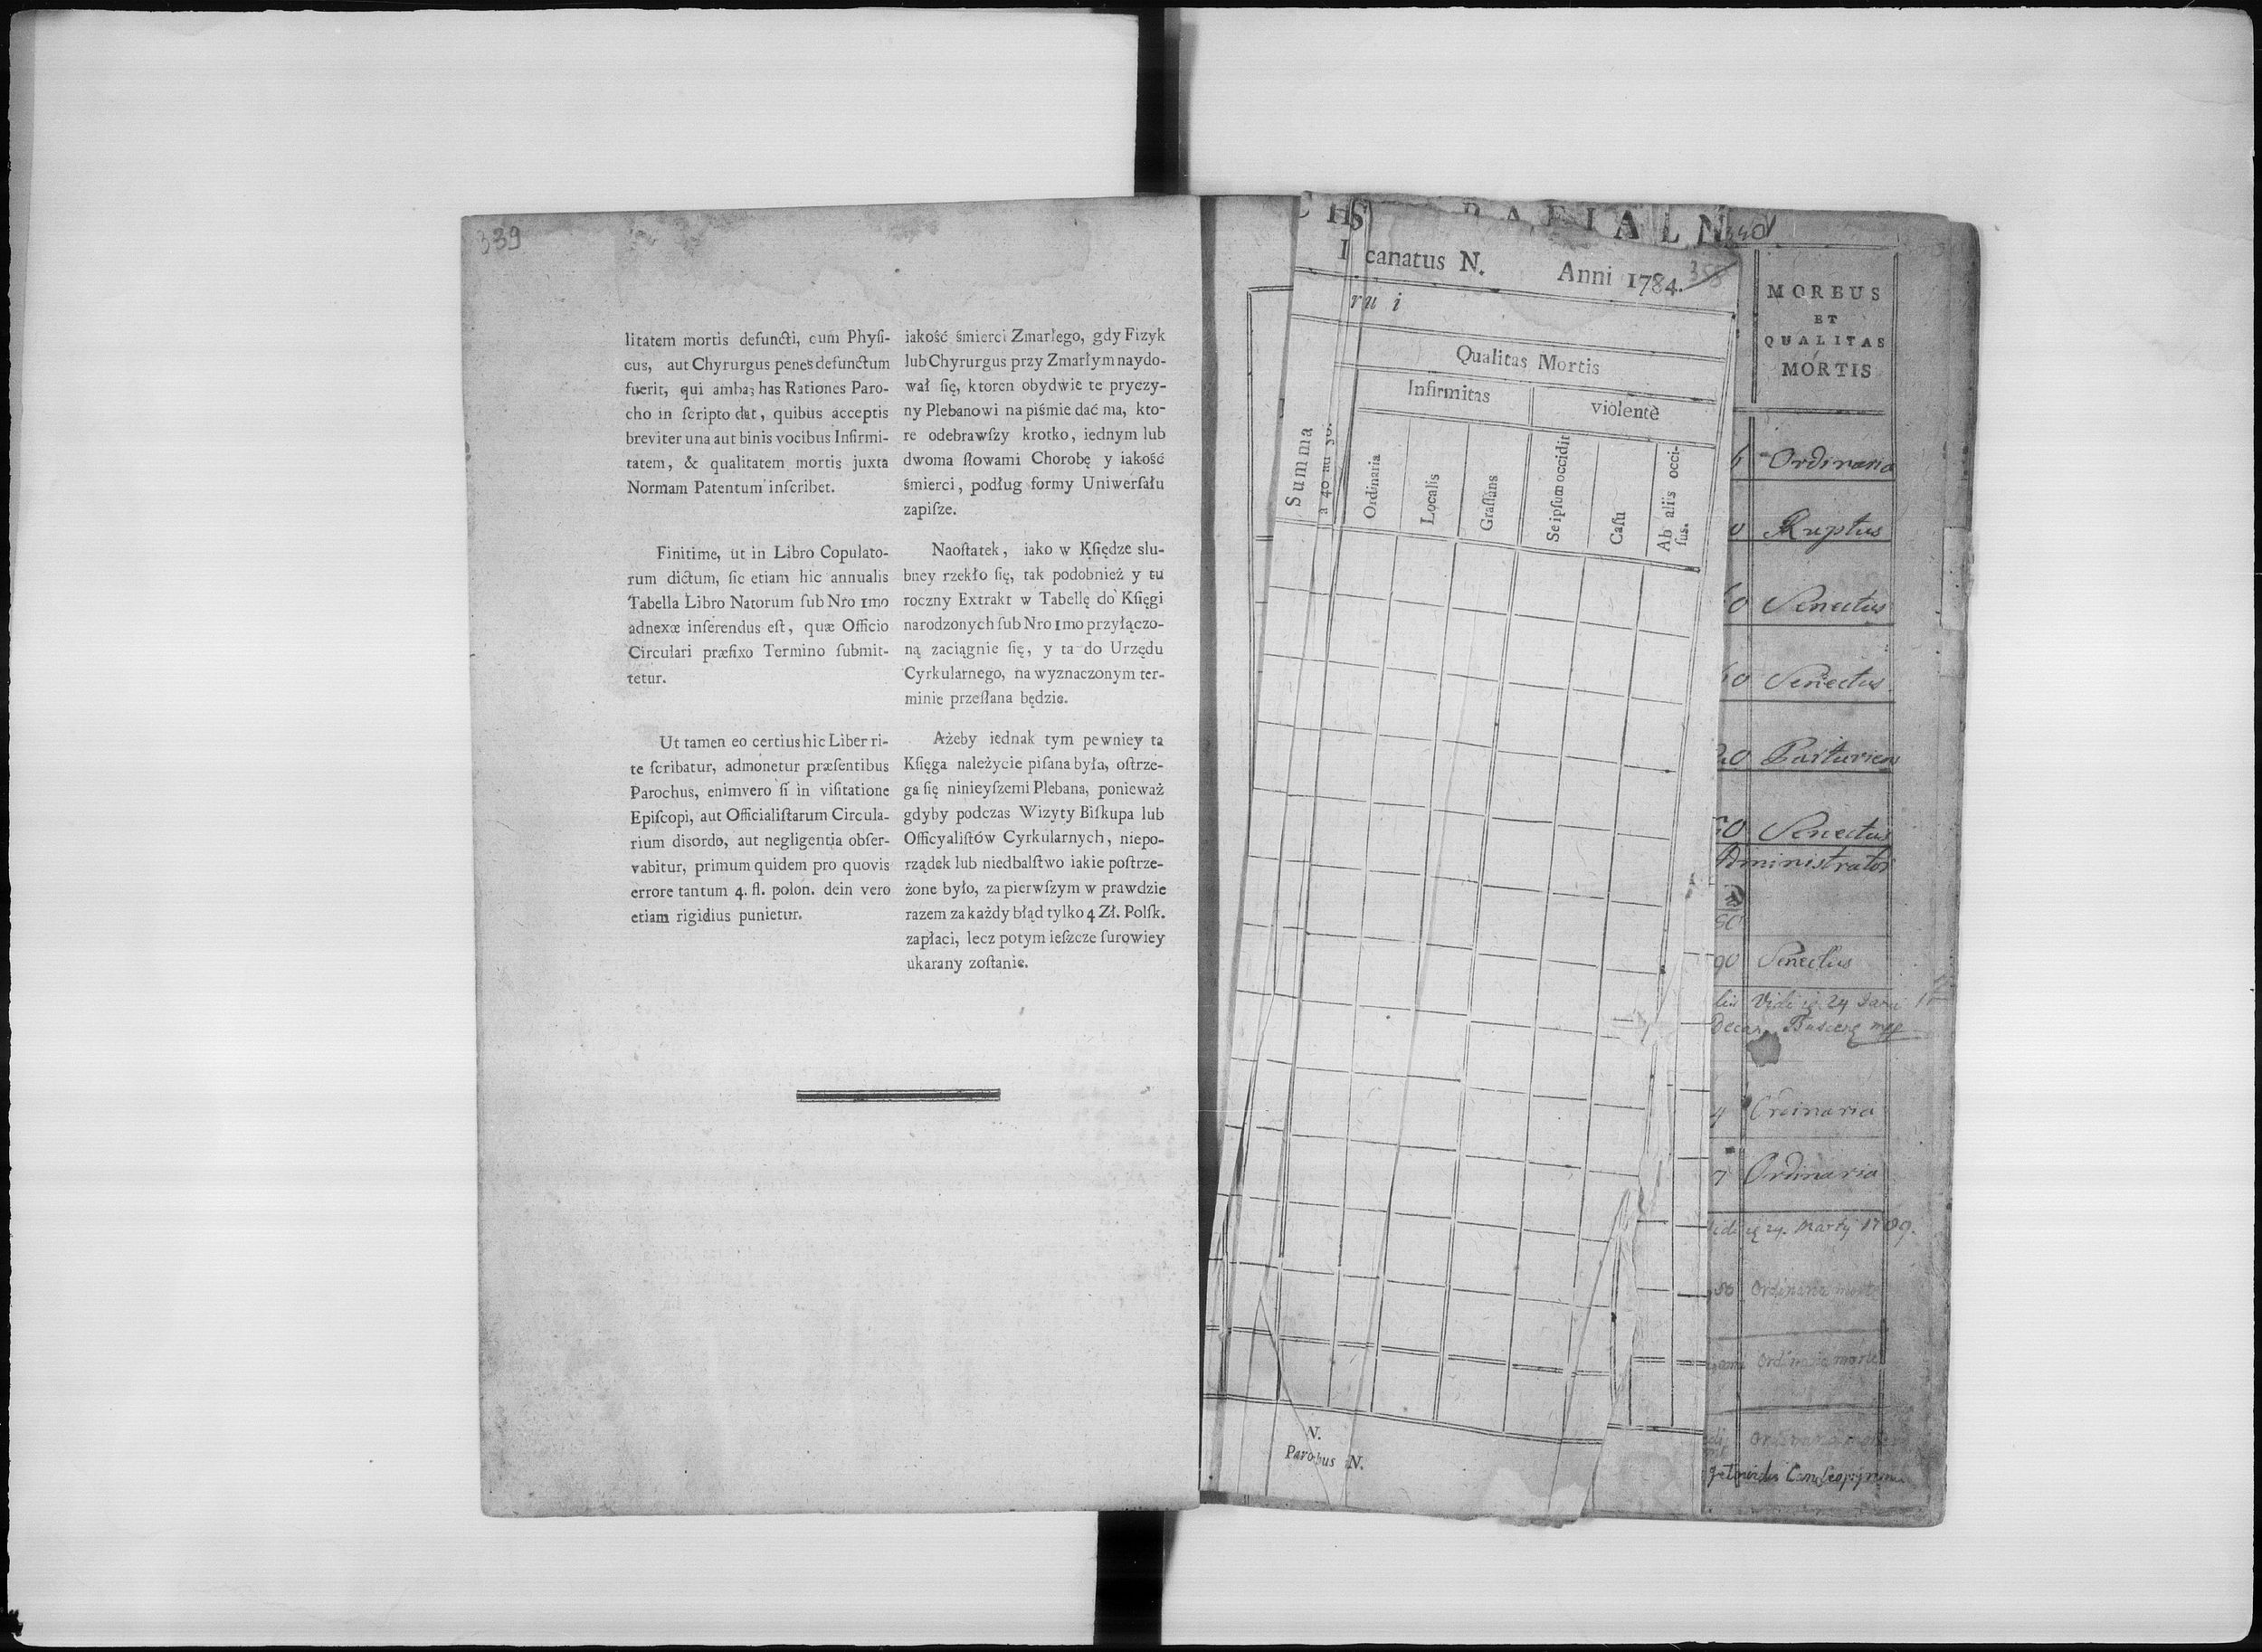 339
litatem mortis defuncti, cum Phyſi-
cus, aut Chyrurgus penes defunctum
fuerit, qui ambas has Rationes Paro-
cho in ſcripto dat, quibus acceptis
breviter una aut binis vocibus Infirmi-
tatem, & qualitatem mortis juxta
Normam Patentum inſcribet.
Finitime, ut in Libro Copulato-
rum dictum, ſic etiam hic annualis
Tabella Libro Natorum ſub Nro 1mo
adnexæ inſerendus eſt, quæ Officio
Circulari præfixo Termino ſubmit-
tetur.
Ut tamen eo certius hic Liber ri-
te ſcribatur, admonetur præſentibus
Parochus, enimvero ſi in viſitatione
Epiſcopi, aut Officialiſtarum Circula-
rium disordo, aut negligentia obſer-
vabitur, primum quidem pro quovis
errore tantum 4. fl. polon. dein vero
etiam rigidius punietur.
iakość śmierci Zmarłego, gdy Fizyk
lub Chyrurgus przy Zmarłym naydo-
wał ſię, ktoren obydwie te pryczy-
ny Plebanowi na piśmie dać ma, kto-
re odebrawſzy krotko, iednym lub
dwoma ſłowami Chorobę y iakość
śmierci, podług formy Uniwerſału
zapiſze.
Naoſtatek, iako w Kſiędze slu-
bney rzekło ſię, tak podobnież y tu
roczny Extrakt w Tabellę do Kſięgi
narodzonych ſub Nro 1mo przyłączo-
ną zaciągnie ſię, y ta do Urzędu
Cyrkularnego, na wyznaczonym ter-
minie przeſłana będzie.
Ażeby iednak tym pewniey ta
Kſięga należycie piſana była, oſtrze-
ga ſię ninieyſzemi Plebana, ponieważ
gdyby podczas Wizyty Biſkupa lub
Officyaliſtów Cyrkularnych, niepo-
rządek lub niedbalſtwo iakie poſtrze-
żone było, za pierwſzym w prawdzie
razem za każdy błąd tylko 4 Zł. Polſk.
zapłaci, lecz potym ieſzcze ſurowiey
ukarany zoſtanie.
R A F I A L N
canatus N. Anni 1784.
ru i
Qualitas Mortis
Infirmitas violentè
Summa
a 40 au 50.
Ordinaria
Localis
Graſſans
Se ipſum occidit
Caſu
Ab aliis occi-
ſus.
N.
Parochus N.
MORBUS
ET
QUALITAS
MORTIS
Ordinaria
Ruptus
Senectus
Senectus
Parturiens
Senectus
Administrator
90 Senectus
Vidi 24
Ordinaria
Ordinaria
24. Martij 1789.
50 Ordinaria
Ordinaria morte